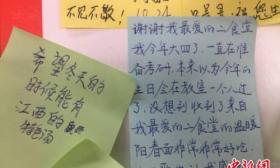 不见不散！
希望冬天的
时候能有
江西的
汤
谢谢我最爱的二食堂
我今年大四了，一直在准
备考研，本来以为今年的
生日会在教室一个人过
了，没想到收到了来自
我最爱的二食堂的温暖
阳春面也非常非常好吃